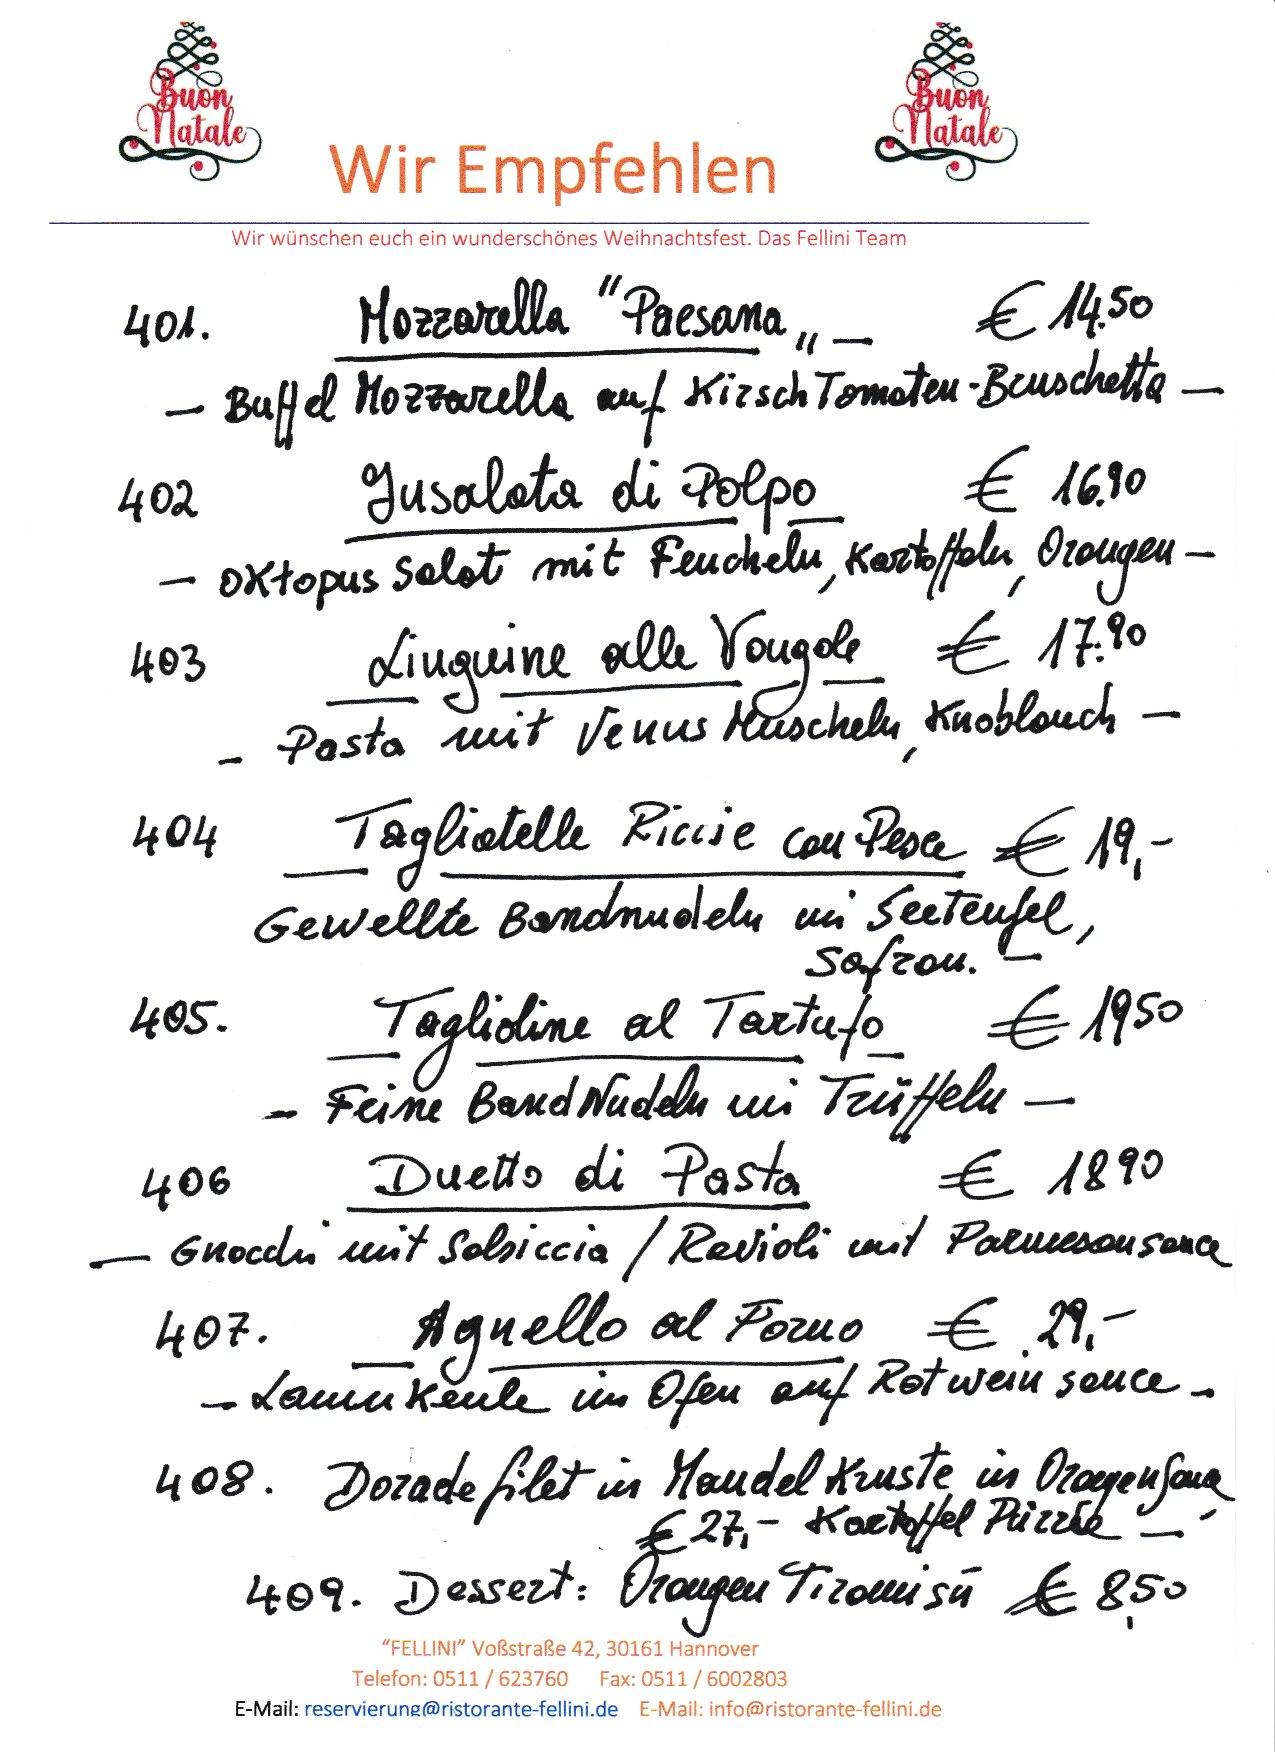 Buon Natale
Buon Natale
Wir Empfehlen
Wir wünschen euch ein wunderschönes Weihnachtsfest. Das Fellini Team
401. Mozzarella "Paesana„ — € 14.50
— Buffel Mozzarella auf Kirsch Tomaten-Bruschetta —
402 Insalata di Polpo € 16.90
— Oktopus Salat mit Fencheln, Kartoffeln, Orangen —
403 Linguine alle Vongole € 17.90
— Pasta mit Venus Muscheln, Knoblauch —
404 Tagliatelle Riccie con Pesce € 19,-
Gewellte Bandnudeln mi Seeteufel,
Safran. —
405. Taglioline al Tartufo € 1950
— Feine BandNudeln mi Trüffeln —
406 Duetto di Pasta € 1890
— Gnocchi mit Salsiccia / Ravioli mit Parmesansauce
407. Agnello al Forno € 29,-
— Lamm Keule im Ofen auf Rotwein sauce —
408. Dorade filet in Mandel Kruste in
€ 27,- Kartoffel —
409. Dessert: Orangen Tiramisú € 8,50
“FELLINI” Voßstraße 42, 30161 Hannover
Telefon: 0511 / 623760 Fax: 0511 / 6002803
E-Mail: reservierung@ristorante-fellini.de E-Mail: info@ristorante-fellini.de